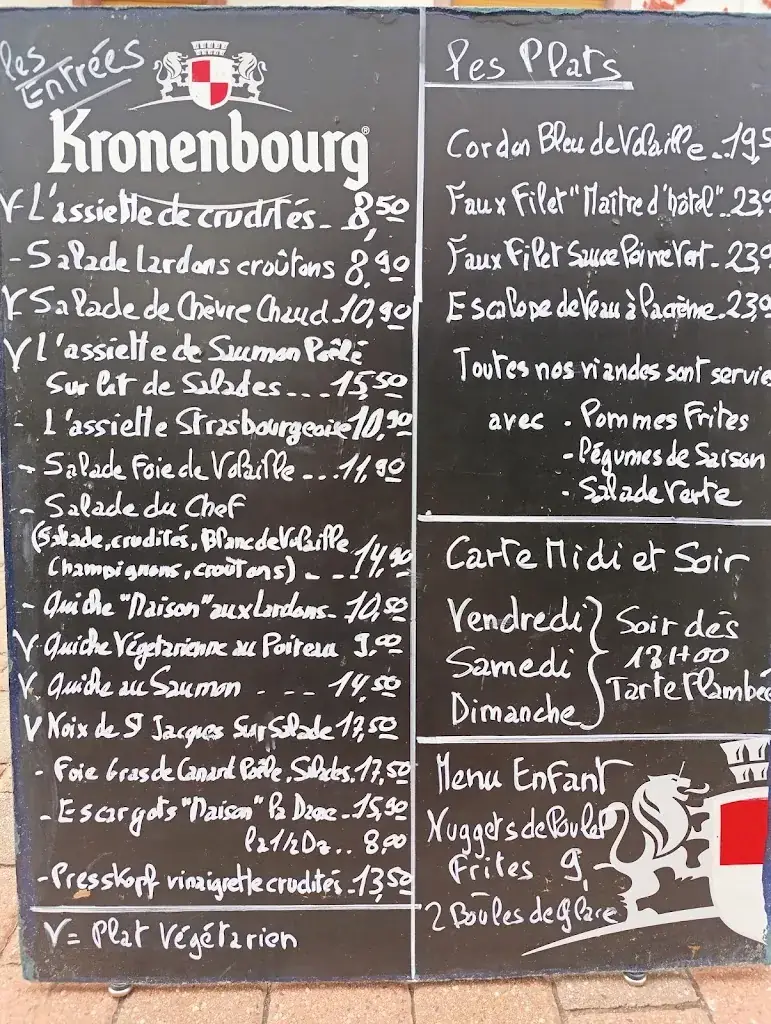 Les Entrées
Kronenbourg
V L'assiette de crudités - 8,50
- Salade Lardons croûtons 8,90
V Salade de Chèvre Chaud - 10,90
V L'assiette de Saumon Poêlé
Sur Lit de Salades... 15,50
- L'assiette Strasbourgeoise 10,90
- Salade Foie de Volaille ... 11,90
- Salade du Chef
(Salade, crudités, Blanc de Volaille
Champignons, croûtons) - -- 14,90
- Quiche "Maison" aux Lardons - 10,50
V Quiche Végétarienne au Poireau 9,00
V Quiche au Saumon - - - 14,50
V Noix de St Jacques Sur Salade 17,50
- Foie Gras de Canard Poêlé, Salades. 17,50
- Escargots "Maison" la Douz - 15,90
la 1/2 Dz .. 8,00
- Presskopf vinaigrette crudités - 13,50
V = Plat Végétarien
Les Plats
Cordon Bleu de Volaille - 19,5
Faux Filet "Maître d'hôtel" - 23,9
Faux Filet Sauce Poivre Vert - 23,9
Escalope de Veau à la crème - 23,9
Toutes nos viandes sont servie
avec . Pommes Frites
- Légumes de Saison
. Salade Verte
Carte Midi et Soir
Vendredi
Samedi
Dimanche
Soir dés
18H00
Tarte Flambée
Menu Enfant
Nuggets de Poulet
Frites 9,
2 Boûles de glace